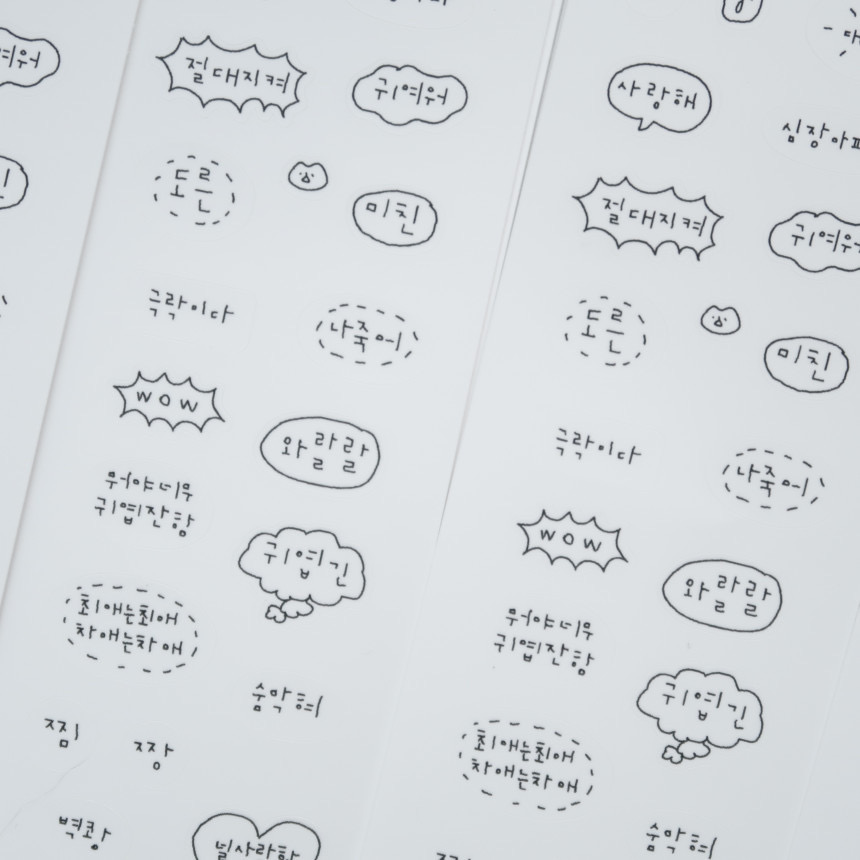 절대지켜
귀여워
도른
미친
극락이다
나죽어
WOW
와랄랄
뭐야너무
귀엽잔함
귀엽긴
최애는최애
차애는차애
숨막혀
찜
짱
벽쾅
널사랑함
사랑해
심장아파
절대지켜
귀여워
도른
미친
극락이다
나죽어
WOW
와랄랄
뭐야너무
귀엽잔함
귀엽긴
최애는최애
차애는차애
숨막혀